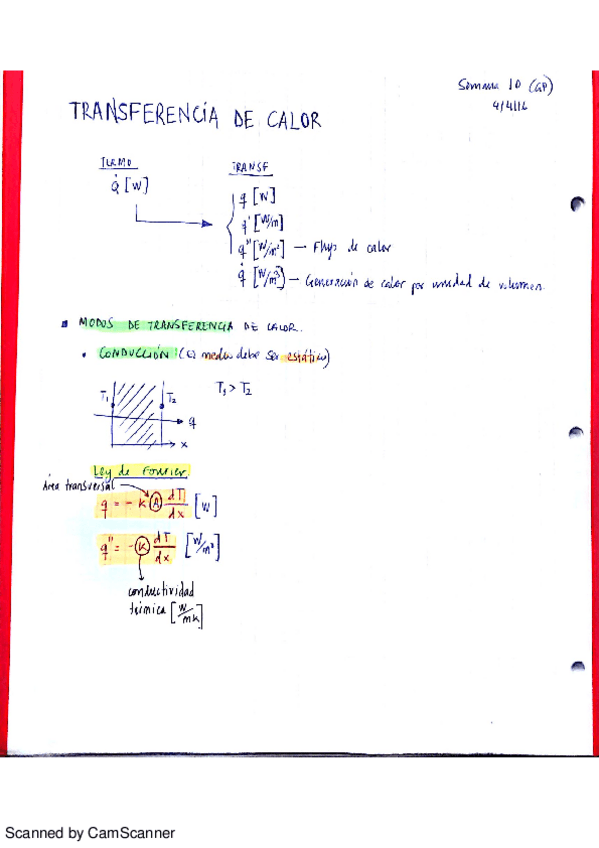 Semana 10 (GP)
4/4/16
TRANSFERENCIA DE CALOR
TERMO
TRANSF
Q̇ [W]
q [W]
q' [W/m]
q'' [W/m²] — Flujo de calor
q̇ [W/m³] — Generación de calor por unidad de volumen.
MODOS DE TRANSFERENCIA DE CALOR.
• CONDUCCIÓN: (el medio debe ser estático)
T₁ T₂ T₁ > T₂
q
x
Ley de Fourier.
Área transversal
q = - k A dT/dx [W]
q'' = - k dT/dx [W/m²]
conductividad
térmica [W/mK]
Scanned by CamScanner